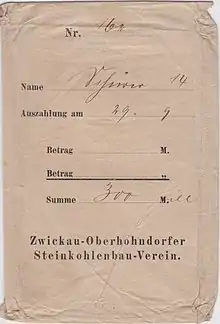 Nr. 160
Name Schürer 14
Auszahlung am 29. 9
Betrag M.
Betrag „
Summe 300 M.
Zwickau-Oberhohndorfer
Steinkohlenbau-Verein.